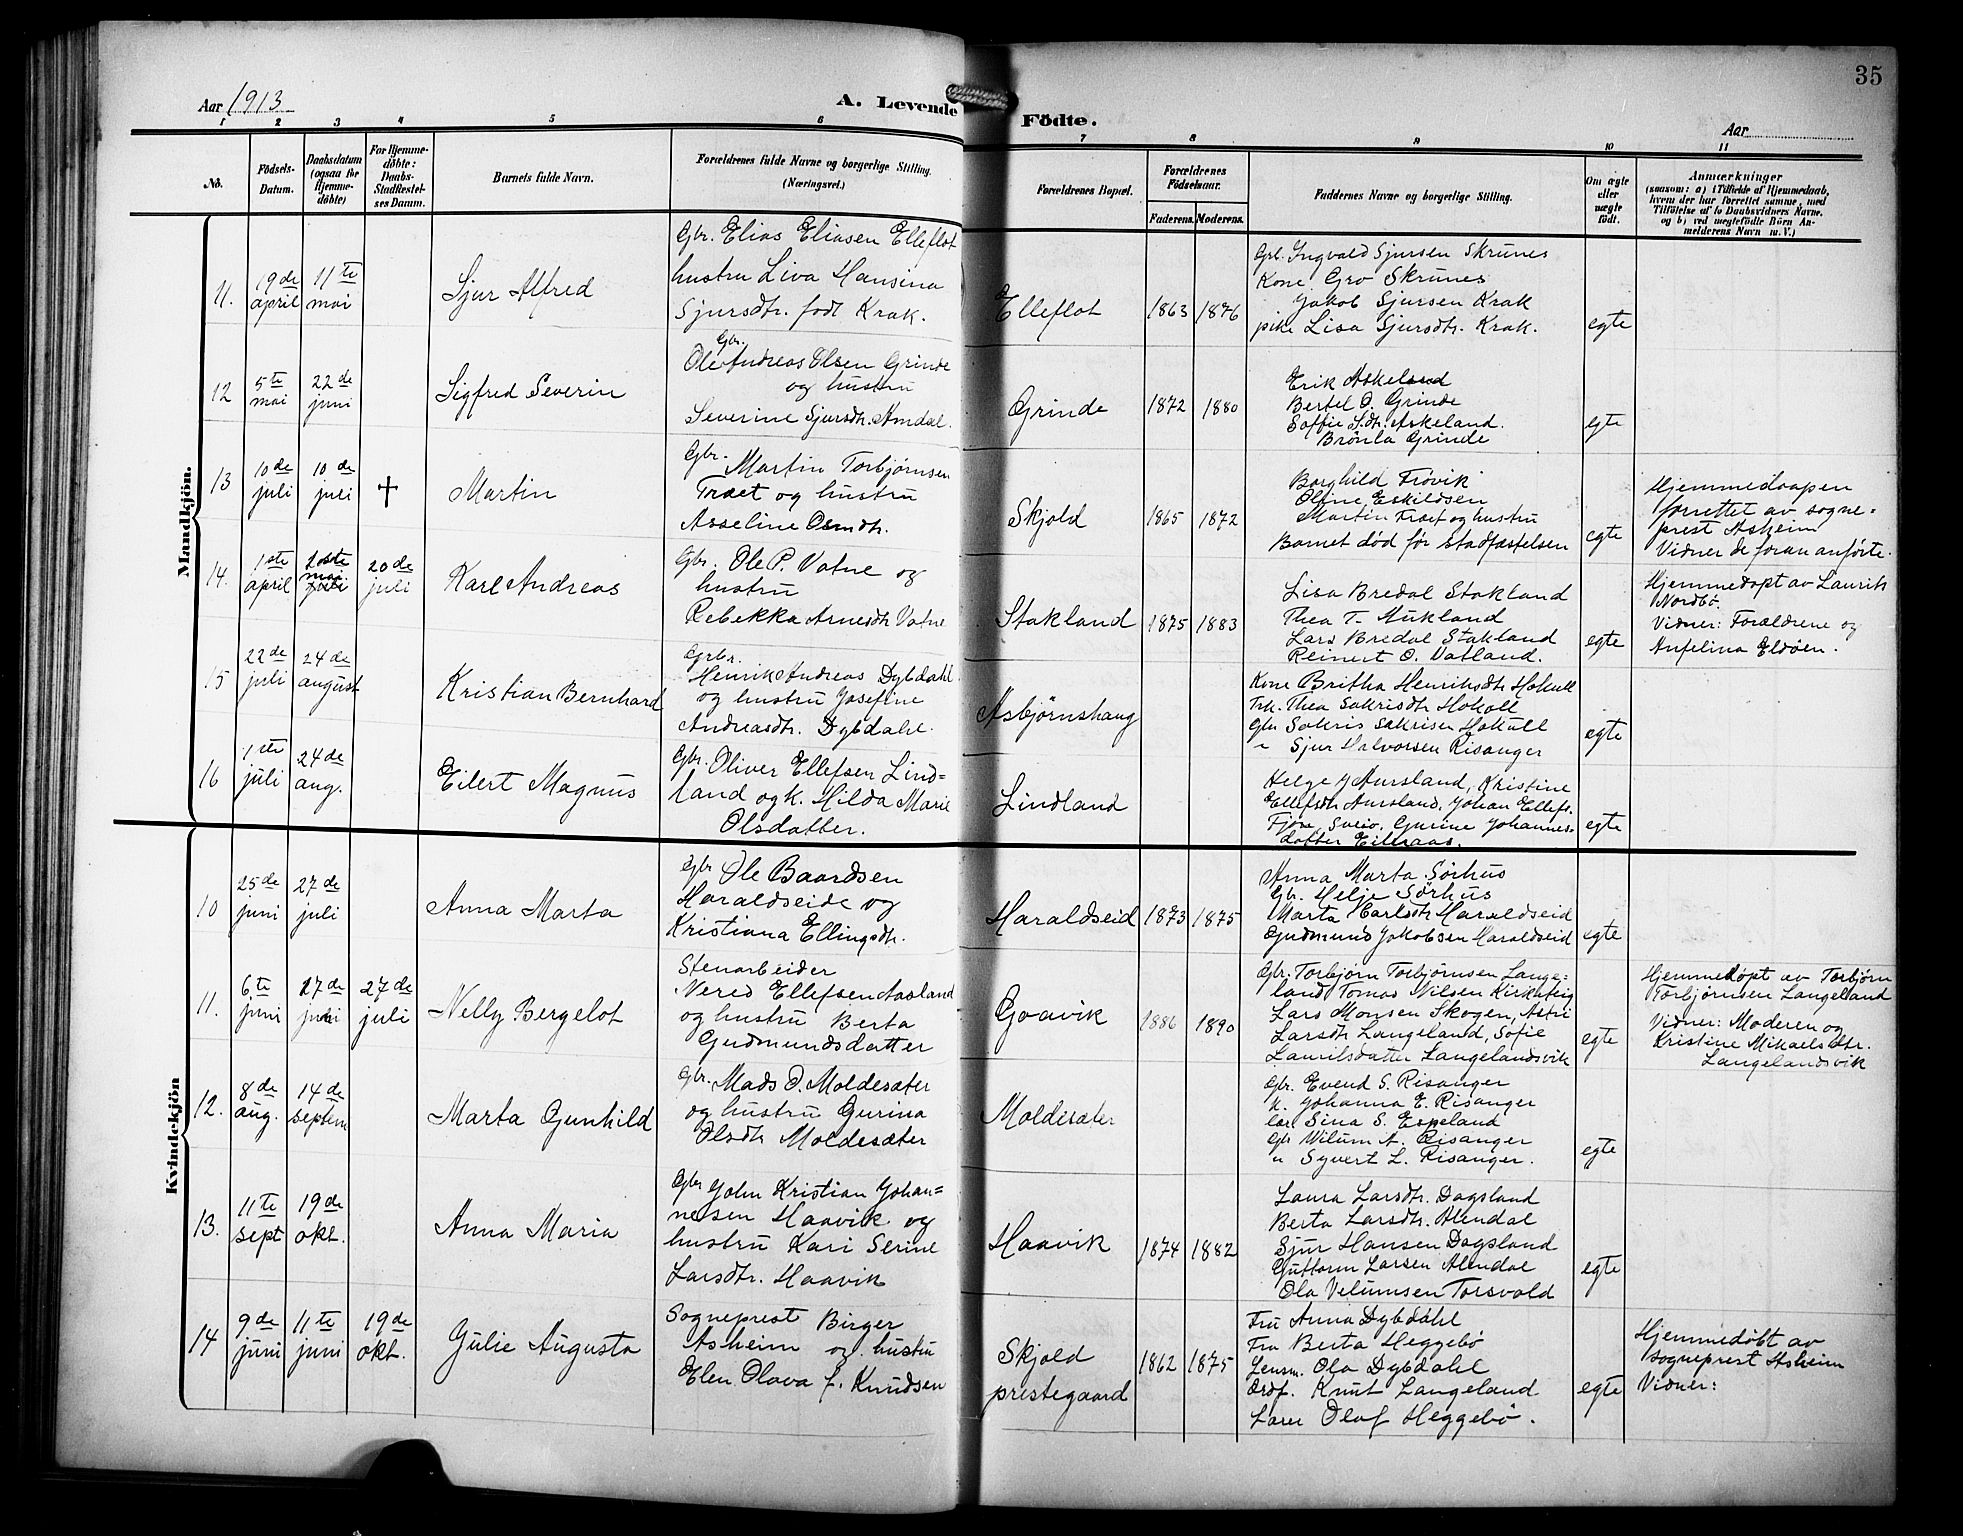 35
Aar 1913
A. Levende Födte.
Aar
1 2 3 4 5 6 7 8 9 10 11
No.
Födsels-
Datum.
Daabsdatum
(ogsaa for
Hjemme-
döbte)
For Hjemme-
döbte:
Daabs-
Stadfæstel-
ses Datum.
Barnets fulde Navn.
Forældrenes fulde Navne og borgerlige Stilling.
(Næringsvei.)
Forældrenes Bopæl.
Forældrenes
Födselsaar.
Faderens. Moderens.
Faddernes Navne og borgerlige Stilling.
Om ægte
eller
uægte
født.
Anmærkninger
(saasom: a) i Tilfælde af Hjemmedaab,
hvem der har forrettet samme, med
Tilföielse af to Daabsvidners Navne,
og b) ved uægtefödte Börn An-
melderens Navn m. V.)
Mandkjön.
11.
19de
april
11te
mai
Sjur Alfred
Gbr. Elias Eliasen Elleflot
hustru Liva Hansina
Sjursdtr. født Krak.
Elleflot
1863 1876
Gbr. Ingvald Sjursen Skrunes
Kone Gro Skrunes
Jakob Sjursen Krak
pike Lisa Sjursdtr. Krak.
egte
12
5te
mai
22de
juni
Sigfred Severin
Gbr.
Ole Andreas Olsen Grinde
og hustru
Severine Sjursdtr. Amdal.
Grinde
1872 1880
Erik Askeland
Bertel O. Grinde
Soffie S.dtr. Askeland.
Brönla Grinde
egte
13
10de
juli
10de
juli
+
Martin
Gbr. Martin Torbjørnsen
Træet og hustru
Asseline Osmdtr.
Skjold
1865 1872
Borghild Frövik
Oline Eskildsen
Martin Træet og hustru
Barnet død før Stadfæstelsen
egte
Hjemmedaapen
forrettet av sogne=
prest Asheim
Vidner de foran anførte.
14.
1ste
april
mai
20de
juli
Karl Andreas
Gbr. Ole P. Vatne og
hustru
Rebekka Arnesdtr Vatne
Stakland
1875 1883
Lisa Bredal Stakland
Thea T. Aukland
Lars Bredal Stakland
Reinert O. Vatland.
egte
Hjemmedøpt av Laurits
Nordbö.
Vidner: Forældrene og
Anfelina Eldöen.
15
22de
juli
24de
august
Kristian Bernhard
Grbr.
Henrik Andreas Dybdahl
og hustru Josefine
Andreasdtr. Dybdahl.
Asbjørnshaug
Kone Britha Henriksdtr Hokull
Frk. Thea Sakrisdtr Hokoll
Gbr Sakris Sakrisen Hokull
" Sjur Halvorsen Risanger
egte
16
1ste
juli
24de
aug.
Eilert Magnus
Gbr. Oliver Ellefsen Lind=
land og k. Hilda Marie
Olsdatter.
Lindland
Helge J Aursland, Kristine
Ellefsdtr Aursland, Johan Ellefs.
Fjøse, Gurine Johannes-
datter
egte
Kvindekjön
10
25de
juni
27de
juli
Anna Marta
Gbr Ole Baardsen
Haraldseide og
Kristiana Ellingsdtr.
Haraldseid
1873 1875
Anna Marta Sörhus
Gbr. Helje Sörhus
Marta Carlsdtr Haraldseid
Gudmund Jakobsen Haraldseid
egte
11.
6te
juni
27de
juni
27de
juli
Nelly Bergelot
Stenarbeider
Nered Ellefsen Aasland
og hustru Berta
Gudmundsdatter
Goavik
1886 1890
Gbr. Torbjørn Torbjørnsen Lange=
land Tomas Nilsen Kirketeig
Lars Monsen Skogen, Astri
Larsdtr Langeland, Sofie
Lauritsdatter Langelandsvik
egte
Hjemmedøpt av Torbjørn
Torbjørnsen Langeland
Vidner: Moderen og
Kristine Mikaelsdtr.
Langelandsvik
12.
8de
aug.
14de
septem
Marta Gunhild
Gbr. Mads O. Moldesæter
og hustru Gurina
Olsdtr Moldesæter
Moldesæter
Gbr. Evend S. Risanger
k. Johanna E. Risanger
Sina S. Espeland
Gbr Vilum A. Risanger
" Syvert L. Risanger.
egte
13.
11te
sept
19de
okt.
Anna Maria
Gbr John Kristian Johan=
nesen Haavik og
hustru Kari Serine
Larsdtr. Haavik
Haavik
1874 1882
Laura Larsdtr. Dagsland
Berta Larsdtr. Alendal
Sjur Hansen Dagsland
Guttorm Larsen Alendal
Ola Velumsen Torsvold
egte
14
9de
juni
11te
juni
19de
okt.
Gulie Augusta
Sogneprest Birger
Asheim og hustru
Elen Olava f. Knudsen
Skjold
prestegaard
1862 1875
Fru Anna Dybdahl
Fru Berta Heggebö
Lensm. Ola Dybdahl
Ordf. Knut Langeland
Lærer Olaf Heggebö.
egte
Hjemmedøbt av
sogneprest Asheim
Vidner: